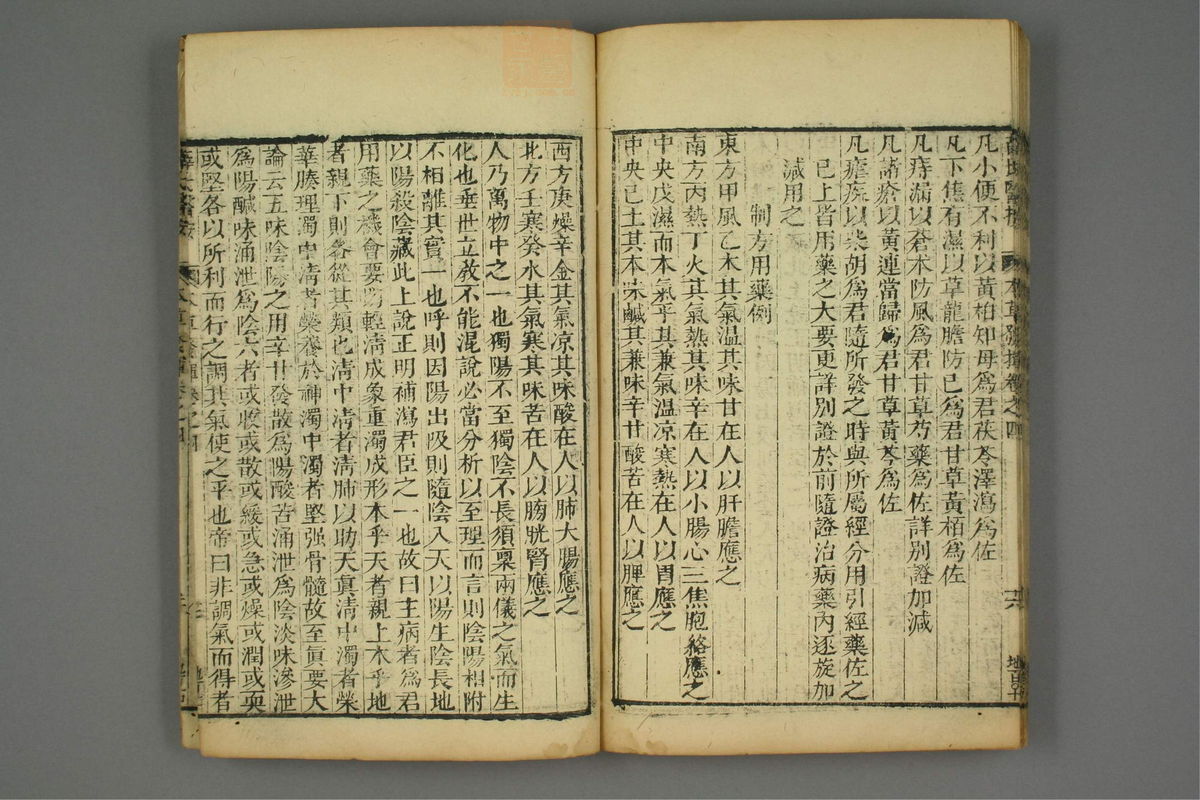 本草發揮卷之四
凡小便不利以黃柏知母爲君茯苓澤瀉爲佐
凡下焦有濕以草龍膽防已爲君甘草黃栢爲佐
凡痔漏以蒼朮防風爲君甘草芍藥爲佐詳別證加減
凡諸瘡以黃連當歸爲君甘草黃芩爲佐
凡瘧疾以柴胡爲君隨所發之時與所屬經分用引經藥佐之
已上皆用藥之大要更詳別證於前隨證治病藥內逐旋加
減用之
制方用藥例
東方甲風乙木其氣溫其味甘在人以肝膽應之
南方丙熱丁火其氣熱其味辛在人以小腸心三焦胞絡應之
中央戊濕而本氣平其兼氣溫凉寒熱在人以胃應之
中央已土其本味鹹其兼味辛甘酸苦在人以脾應之
西方庚燥辛金其氣凉其味酸在人以肺大腸應之
北方壬寒癸水其氣寒其味苦在人以膀胱腎應之
人乃萬物中之一也獨陽不至獨陰不長須稟兩儀之氣而生
化也垂世立教不能混說必當分析以至理而言則陰陽相附
不相離其實一也呼則因陽出吸則隨陰入天以陽生陰長地
以陽殺陰藏此上說正明補瀉君臣之一也故曰主病者爲君
用藥之機會要明輕清成象重濁成形本乎天者親上本乎地
者親下則各從其類也清中清者清肺以助天眞清中濁者榮
華腠理濁中清者榮養於神濁中濁者堅强骨髓故至眞要大
論云五味陰陽之用辛甘發散爲陽酸苦涌泄爲陰淡味滲泄
爲陽鹹味涌泄爲陰六者或收或散或緩或急或燥或潤或耎
或堅各以所利而行之調其氣使之平也帝曰非調氣而得者